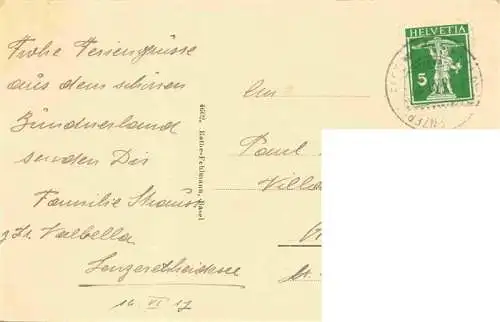 Frohe Feriengrüsse
aus dem schönen
Bündnerland
senden Dir
Familie Strauss
z. Zt. Valbella
Lenzerheidesee
14 VI 17
4602. Rathe-Fehlmann, Basel
An
Paul
Villa
HELVETIA
5